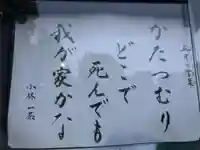 かたつむり
どこで
死んでも
我が家かな
小林一茶